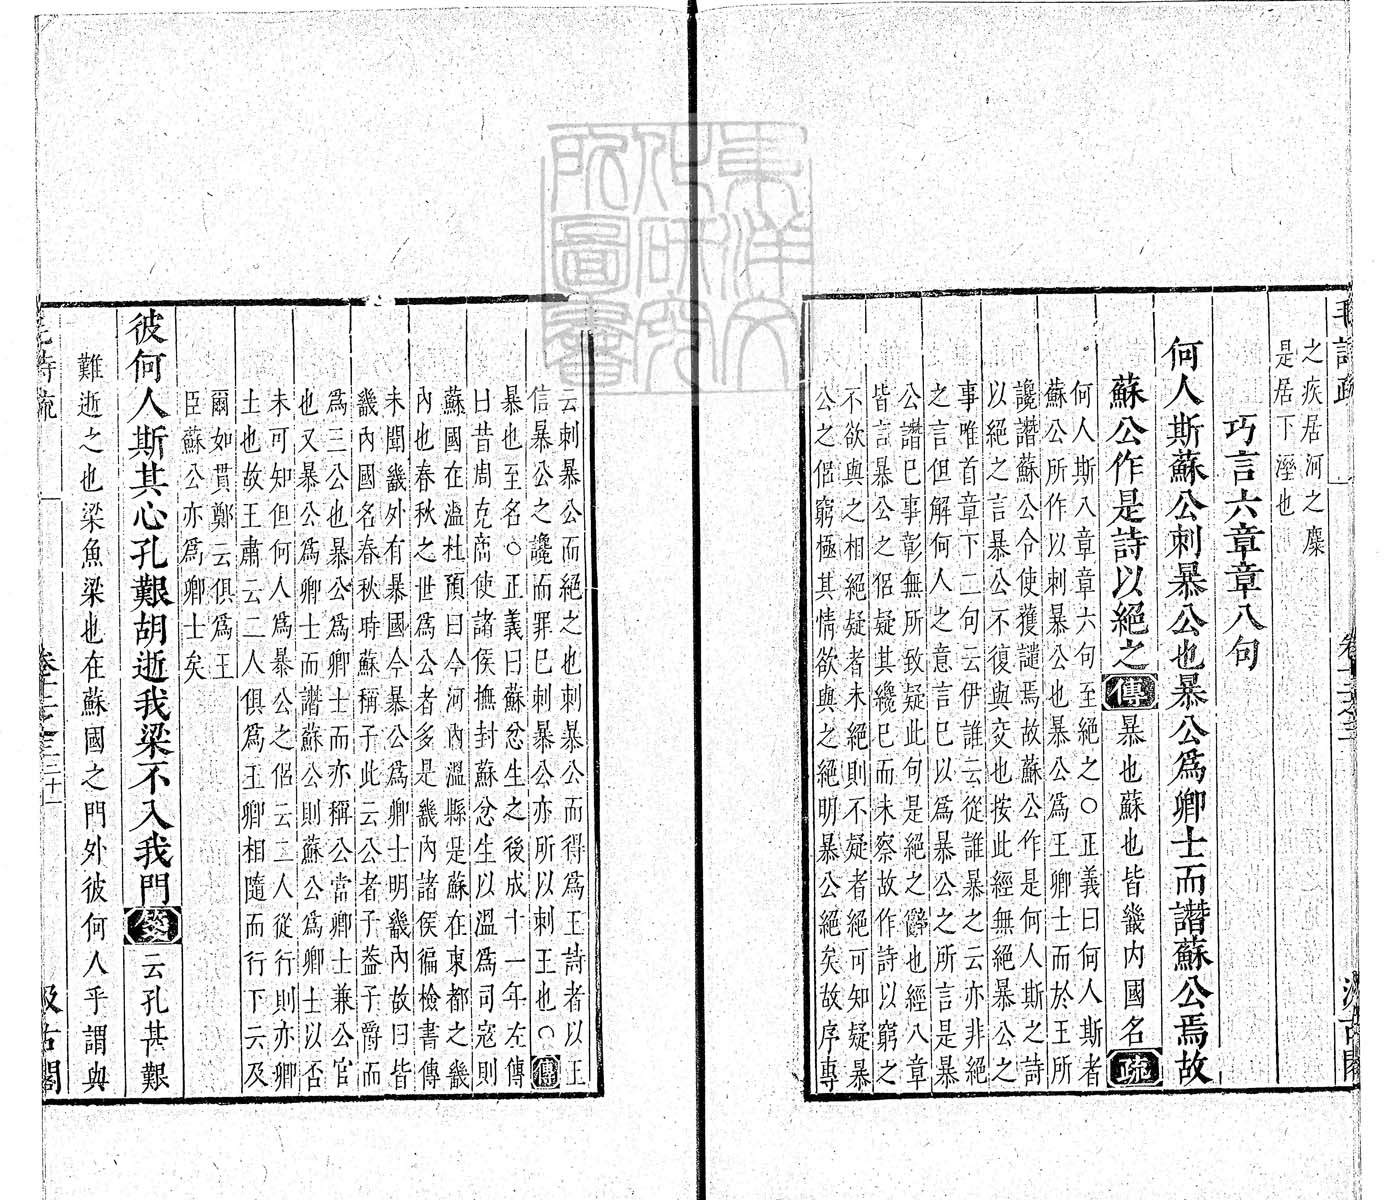 毛詩疏
之疾居河之麋
是居下溼也
巧言六章章八句
何人斯蘇公刺暴公也暴公爲卿士而譖蘇公焉故
蘇公作是詩以絕之傳暴也蘇也皆畿内國名疏
何人斯八章章六句至絕之○正義曰何人斯者
蘇公所作以刺暴公也暴公爲王卿士而於王所
讒譖蘇公令使獲譴焉故蘇公作是何人斯之詩
以絕之言暴公不復與交也按此經無絕暴公之
事唯首章下二句云伊誰云從誰暴之云亦非絕
之言但解何人之意言已以爲暴公之所言是暴
公譖已事彰無所致疑此句是絕之也經八章
皆言暴公之侶疑其讒已而未察故作詩以窮之
不欲與之相絕疑者未絕則不疑者絕可知疑暴
公之侶窮極其情欲與之絕明暴公絕矣故序專
云刺暴公而絕之也刺暴公而得爲王詩者以王
信暴公之讒而罪已刺暴公亦所以刺王也○傳
暴也至名○正義曰蘇忿生之後成十一年左傳
曰昔周克商使諸侯撫封蘇忿生以溫爲司寇則
蘇國在溫杜預曰今河內溫縣是蘇在東都之畿
內也春秋之世爲公者多是畿內諸侯徧檢書傳
未聞畿外有暴國今暴公爲卿士明畿內故曰皆
畿內國名春秋時蘇稱子此云公者子蓋子爵而
爲三公也暴公爲卿士而亦稱公當卿士兼公官
也又暴公爲卿士而譖蘇公則蘇公爲卿士以否
未可知但何人爲暴公之侶云二人從行則亦卿
士也故王肅云二人俱爲王卿相隨而行下云及
爾如貫鄭云俱爲王
臣蘇公亦爲卿士矣
彼何人斯其心孔艱胡逝我梁不入我門箋云孔甚艱
難逝之也梁魚梁也在蘇國之門外彼何人乎謂與
毛詩疏
卷十二之三
二十一
汲古閣
東洋文
化研究
所圖書